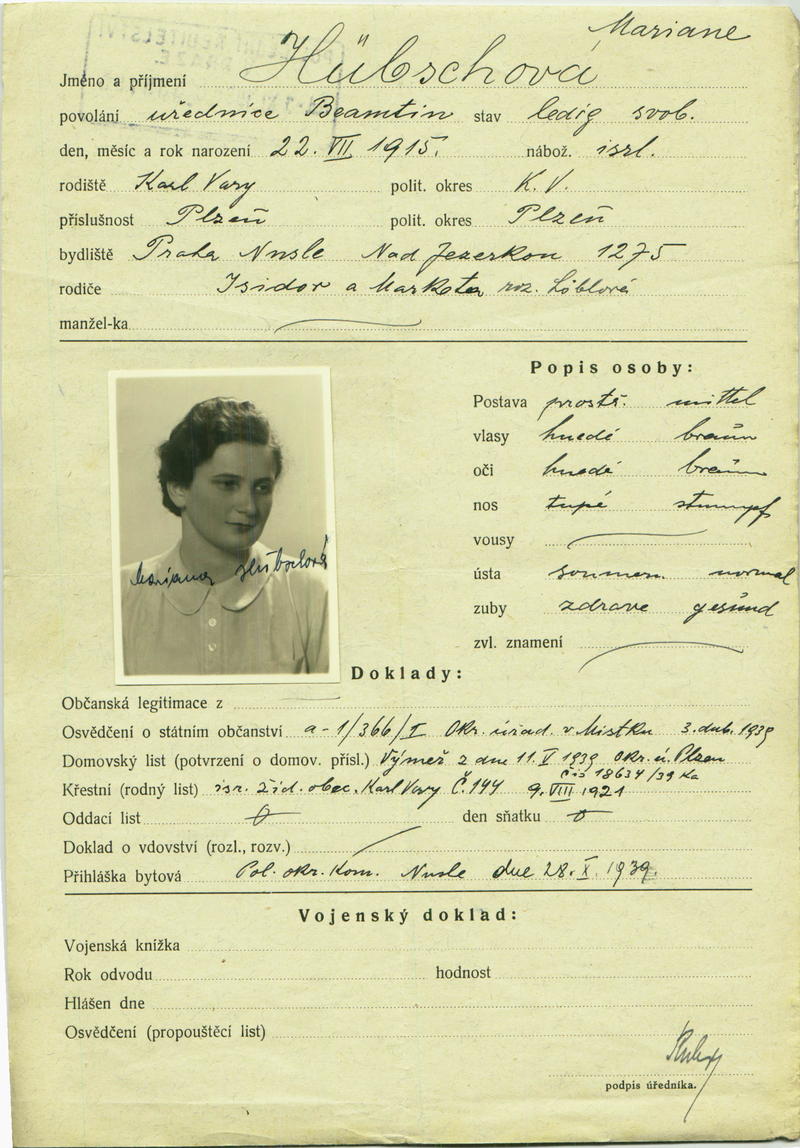 Mariane
Jméno a příjmení Hübschová
povolání uřednice Beamtin stav ledig svob.
den, měsíc a rok narození 22. VII 1915. nábož. isrl.
rodiště Karl Vary polit. okres K. V.
příslušnost Plzeň polit. okres Plzeň
bydliště Praha Nusle Nad Jezerkou 1275
rodiče Isidor a Marketa roz. Löblová
manžel-ka
Popis osoby:
Postava prostř. mittel
vlasy hnedé braün
oči hnedé braün
nos tupé stumpf
vousy
ústa soumer. normal
zuby zdrave gesünd
zvl. znamení
Mariana Hübschová
Doklady:
Občanská legitimace z
Osvědčení o státním občanství a-1/366/I Okr. úřad. v Mistku 3. dub. 1939
Domovský list (potvrzení o domov. přísl.) Výměř z dne 11. V 1939 okr. ú. Plzen
čis 18634/39 Ka
Křestní (rodný list) isr. žid. obec. Karl Vary Č. 144 9. VIII 1921
Oddací list den sňatku
Doklad o vdovství (rozl., rozv.)
Přihláška bytová Pol. okr. Kom. Nusle dne 28. X. 1939.
Vojenský doklad:
Vojenská knížka
Rok odvodu hodnost
Hlášen dne
Osvědčení (propouštěcí list)
podpis úředníka.